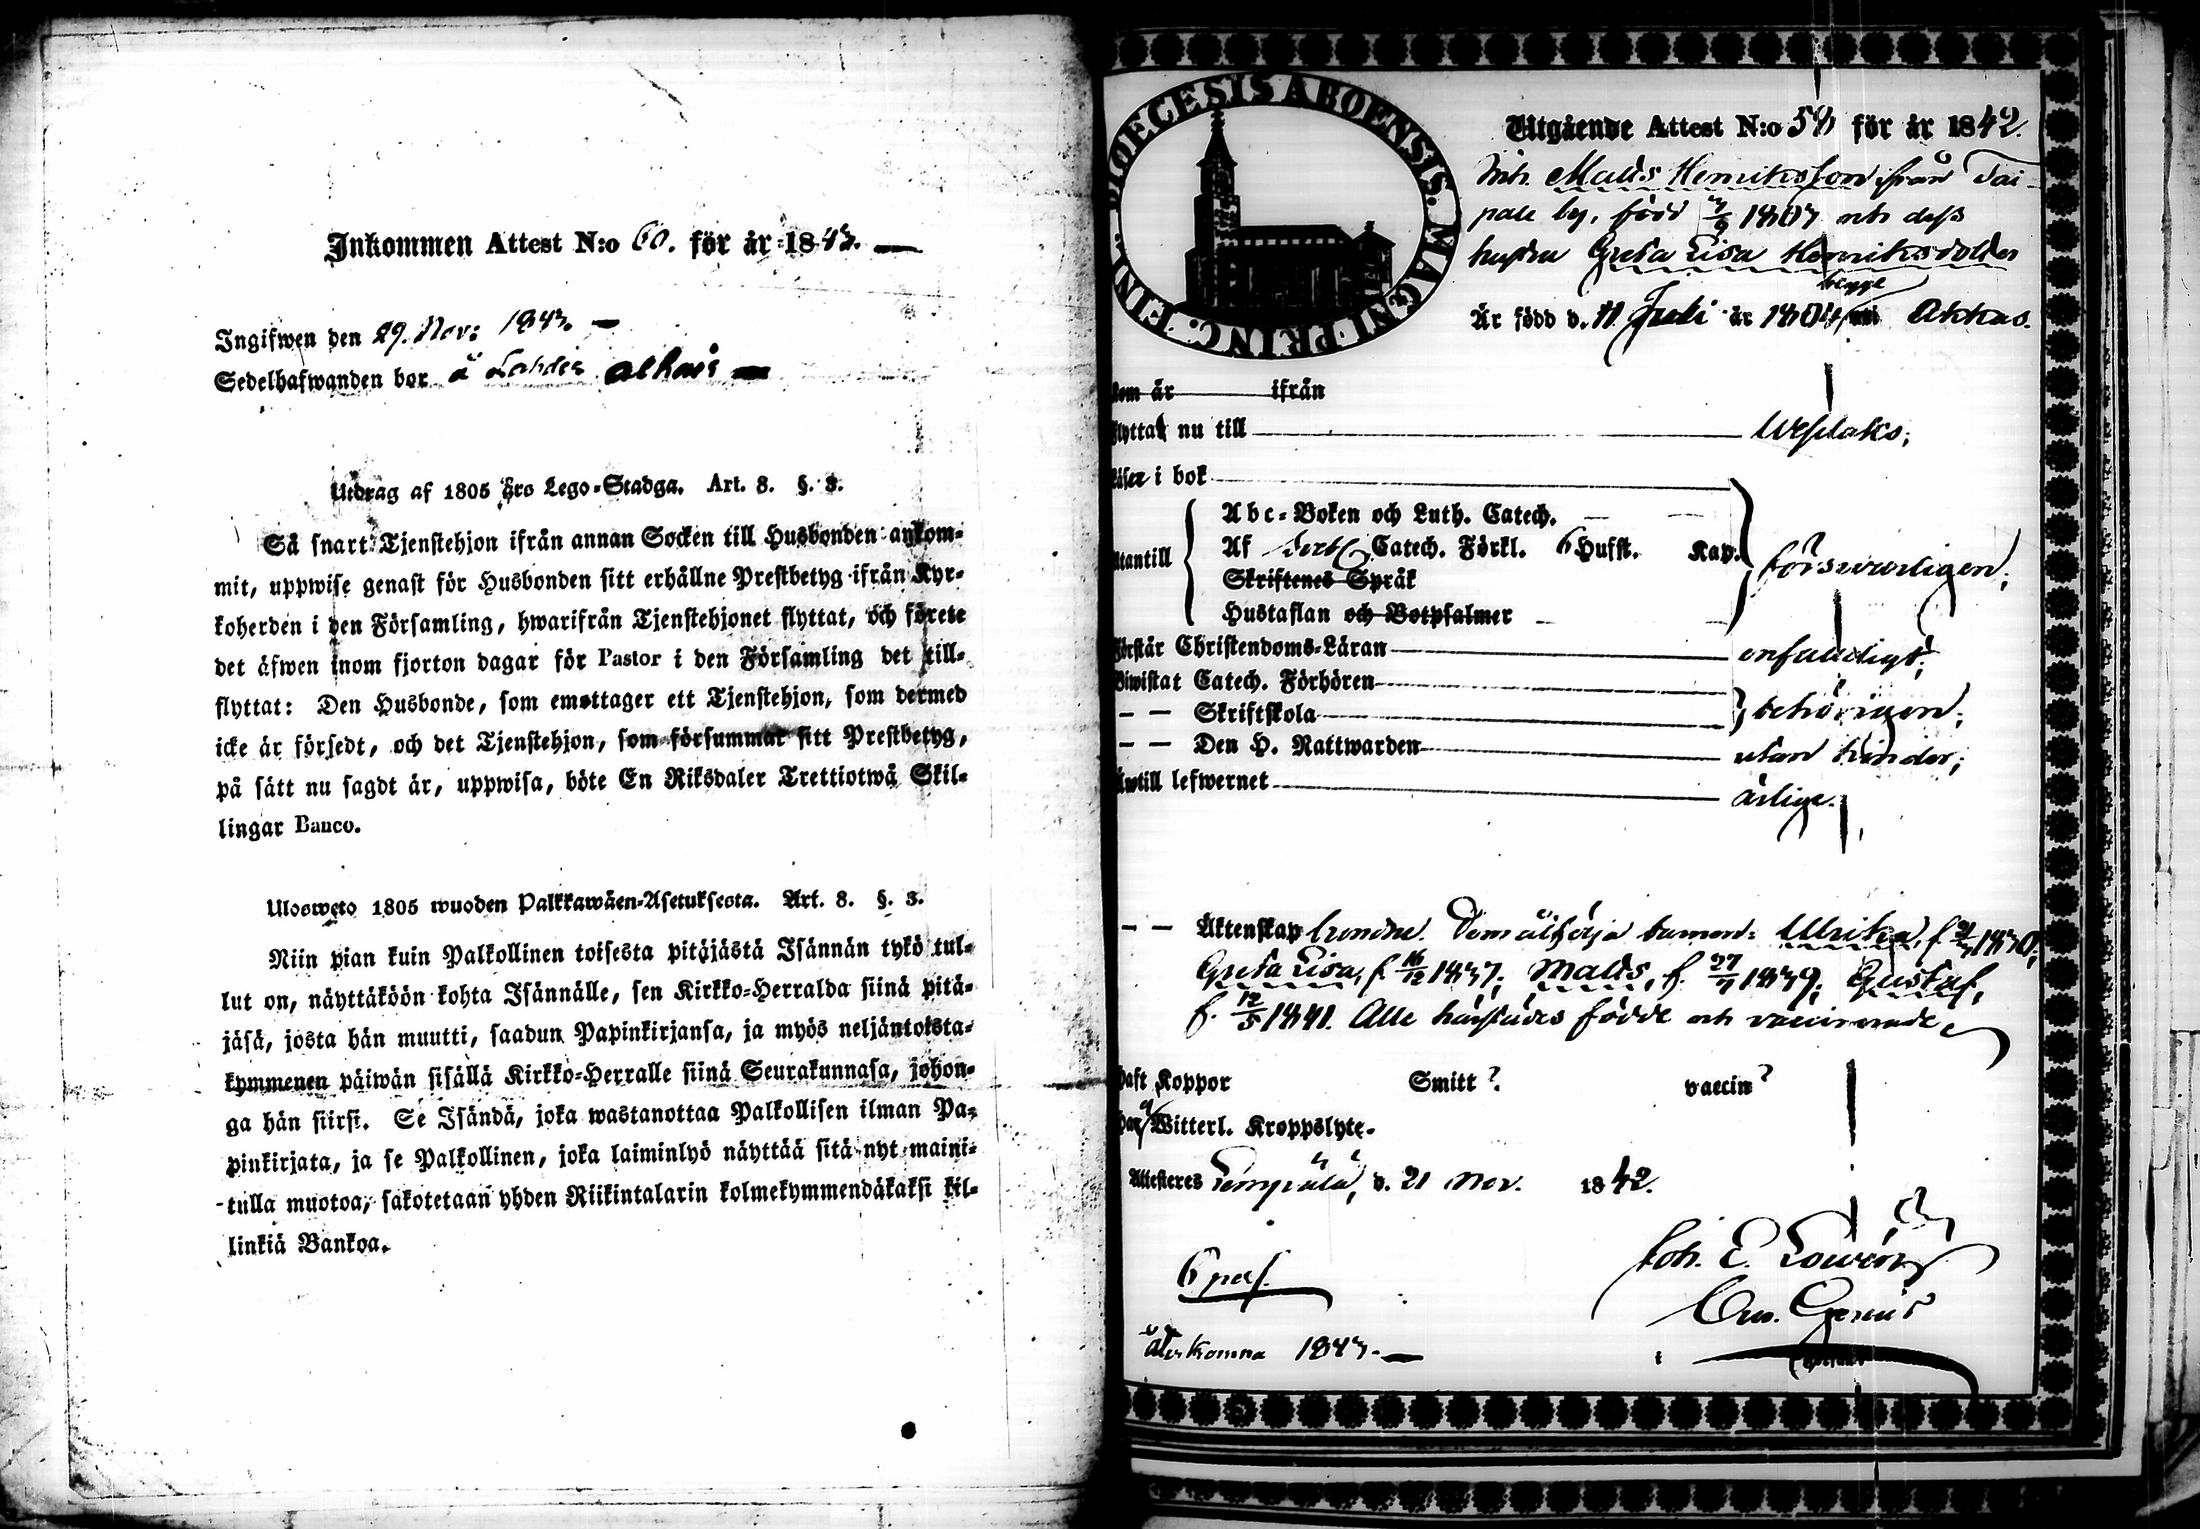 Inkommen Attest N:o 60. för år 1843.
Ingifwen den 29. Nov: 1843.
Sedelhafwanden bor å
Utdrag af 1805 års Lego-Stadga. Art. 8. §. 3.
Så snart Tjenstehjon ifrån annan Socken till Husbonden ankom-
mit, uppwise genast för Husbonden sitt erhållne Prestbetyg ifrån Kyr-
koherden i den Församling, hwarifrån Tjenstehjonet flyttat, och förete
det äfwen inom fjorton dagar för Pastor i den Församling det till-
flyttat: Den Husbonde, som emottager ett Tjenstehjon, som dermed
icke är försedt, och det Tjenstehjon, som försummar sitt Prestbetyg,
på sätt nu sagdt är, uppwisa, böte En Riksdaler Trettiotwå Skil-
lingar Banco.
Ulosweto 1805 wuoden Palkkawäen-Asetuksesta. Art. 8. §. 3.
Niin pian kuin Palkollinen toisesta pitäjästä Isännän tykö tul-
lut on, näyttäköön kohta Isännälle, sen Kirkko-Herralda siinä pitä-
jäsä, josta hän muutti, saadun Papinkirjansa, ja myös neljäntoista-
kymmenen päiwän sisällä Kirkko-Herralle siinä Seurakunnasa, johon-
ga hän siirsi. Se Isändä, joka wastanottaa Palkollisen ilman Pa-
pinkirjata, ja se Palkollinen, joka laiminlyö näyttää sitä nyt maini-
tulla muotoa, sakotetaan yhden Riikintalarin kolmekymmendäkaksi kil-
linkiä Bankoa.
DIOECESIS ABOENSIS. MAGNI PRINC. FINL.
Utgående Attest N:o för år 1842.
Inh. Matts Henriksson ifrån Tai-
pale by, född och dess
hustru Greta Lisa Henriksdotter
begge
Är född d. 11 Juli år i Akkas.
Kom år ifrån
Flytta nu till Wesilaks;
Läser i bok
Abc-Boken och Luth. Catech.
Utantill Af Catech. Förkl. 6 Hufst. Kap. försvarligen;
Skriftenes Språk
Hustaflan och Botpsalmer
Förstår Christendoms-Läran enfaldigt;
Biwistat Catech. Förhören
— — Skriftskola behörigen;
— — Den H. Nattwarden utan hinder;
Äwtill lefwernet ärlige.
— — Äktenskap bundne. Dem åtfölja barnen: Ulrika, f. 1830;
Greta Lisa, f. 16/12 1837; Matts, f. 27/7 1839; Gustaf,
f. 12/5 1841. Alle härstädes födde och vaccinerade.
Haft Koppor Smitt? vaccin?
Har ej Witterl. Kroppslyte.
Attesteras Lempälä, d. 21 Nov. 1842.
Joh. E.
6 pers.
återkomna 1843.